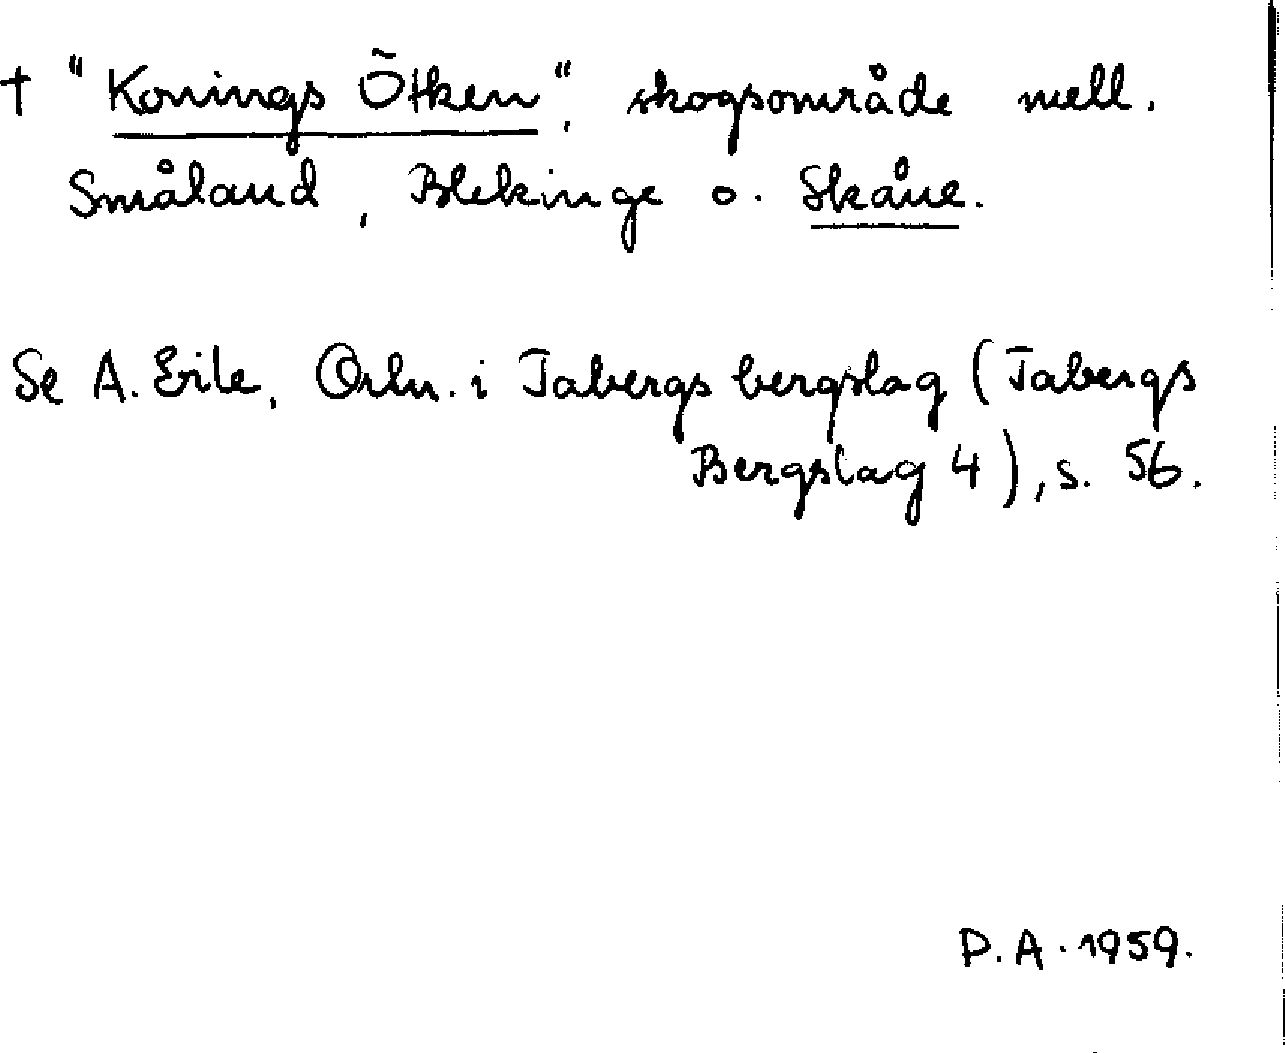 † "Konings Ötken", skogsområde mell.
Småland, Blekinge o. Skåne.
Se A. Erile, Ortn. i Tabergs bergslag (Tabergs
Bergslag 4), s. 56.
P.A. 1959.